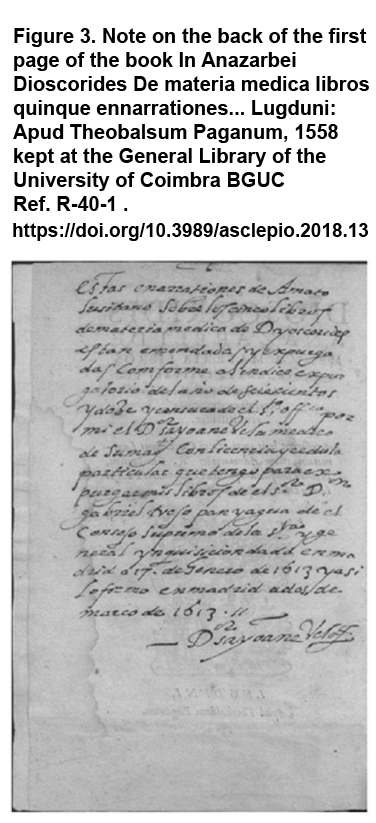 Figure 3. Note on the back of the first
page of the book In Anazarbei
Dioscorides De materia medica libros
quinque ennarrationes... Lugduni:
Apud Theobalsum Paganum, 1558
kept at the General Library of the
University of Coimbra BGUC
Ref. R-40-1 .
https://doi.org/10.3989/asclepio.2018.13
Estas enarrationes de Amato
lusitano sobre los cinco libros
de materia medica de Dyoscorides
estan emendadas y expurga
das Comforme al indice expur
gatorio del año de seiscientos
y doze y censura de el Sto offo por
mi el Dor medico
de su magt Con licencia y cedula
particular que tengo para ex
purgar mis libros de el sor Dn
gabriel de el
Consejo supremo de la sta y ge
neral ynquisicion dada en ma
drid a de Genero de 1613 y asi
lo firmo en madrid a dos de
março de 1613.
Dor